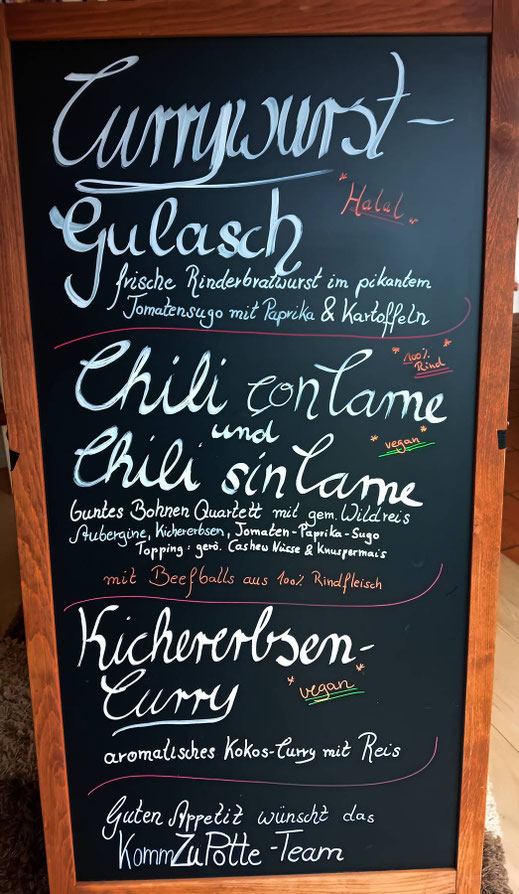 Currywurst-
"Halal"
Gulasch
frische Rinderbratwurst im pikantem
Tomatensugo mit Paprika & Kartoffeln
"100% Rind"
Chili con Carne
und
"vegan"
Chili sin Carne
buntes Bohnen Quartett mit gem. Wildreis
Aubergine, Kichererbsen, Tomaten-Paprika-Sugo
Topping: gerö. Cashew Nüsse & Knuspermais
mit Beefballs aus 100% Rindfleisch
Kichererbsen-
Curry
"vegan"
aromatisches Kokos-Curry mit Reis
Guten Appetit wünscht das
KommZuPotte-Team